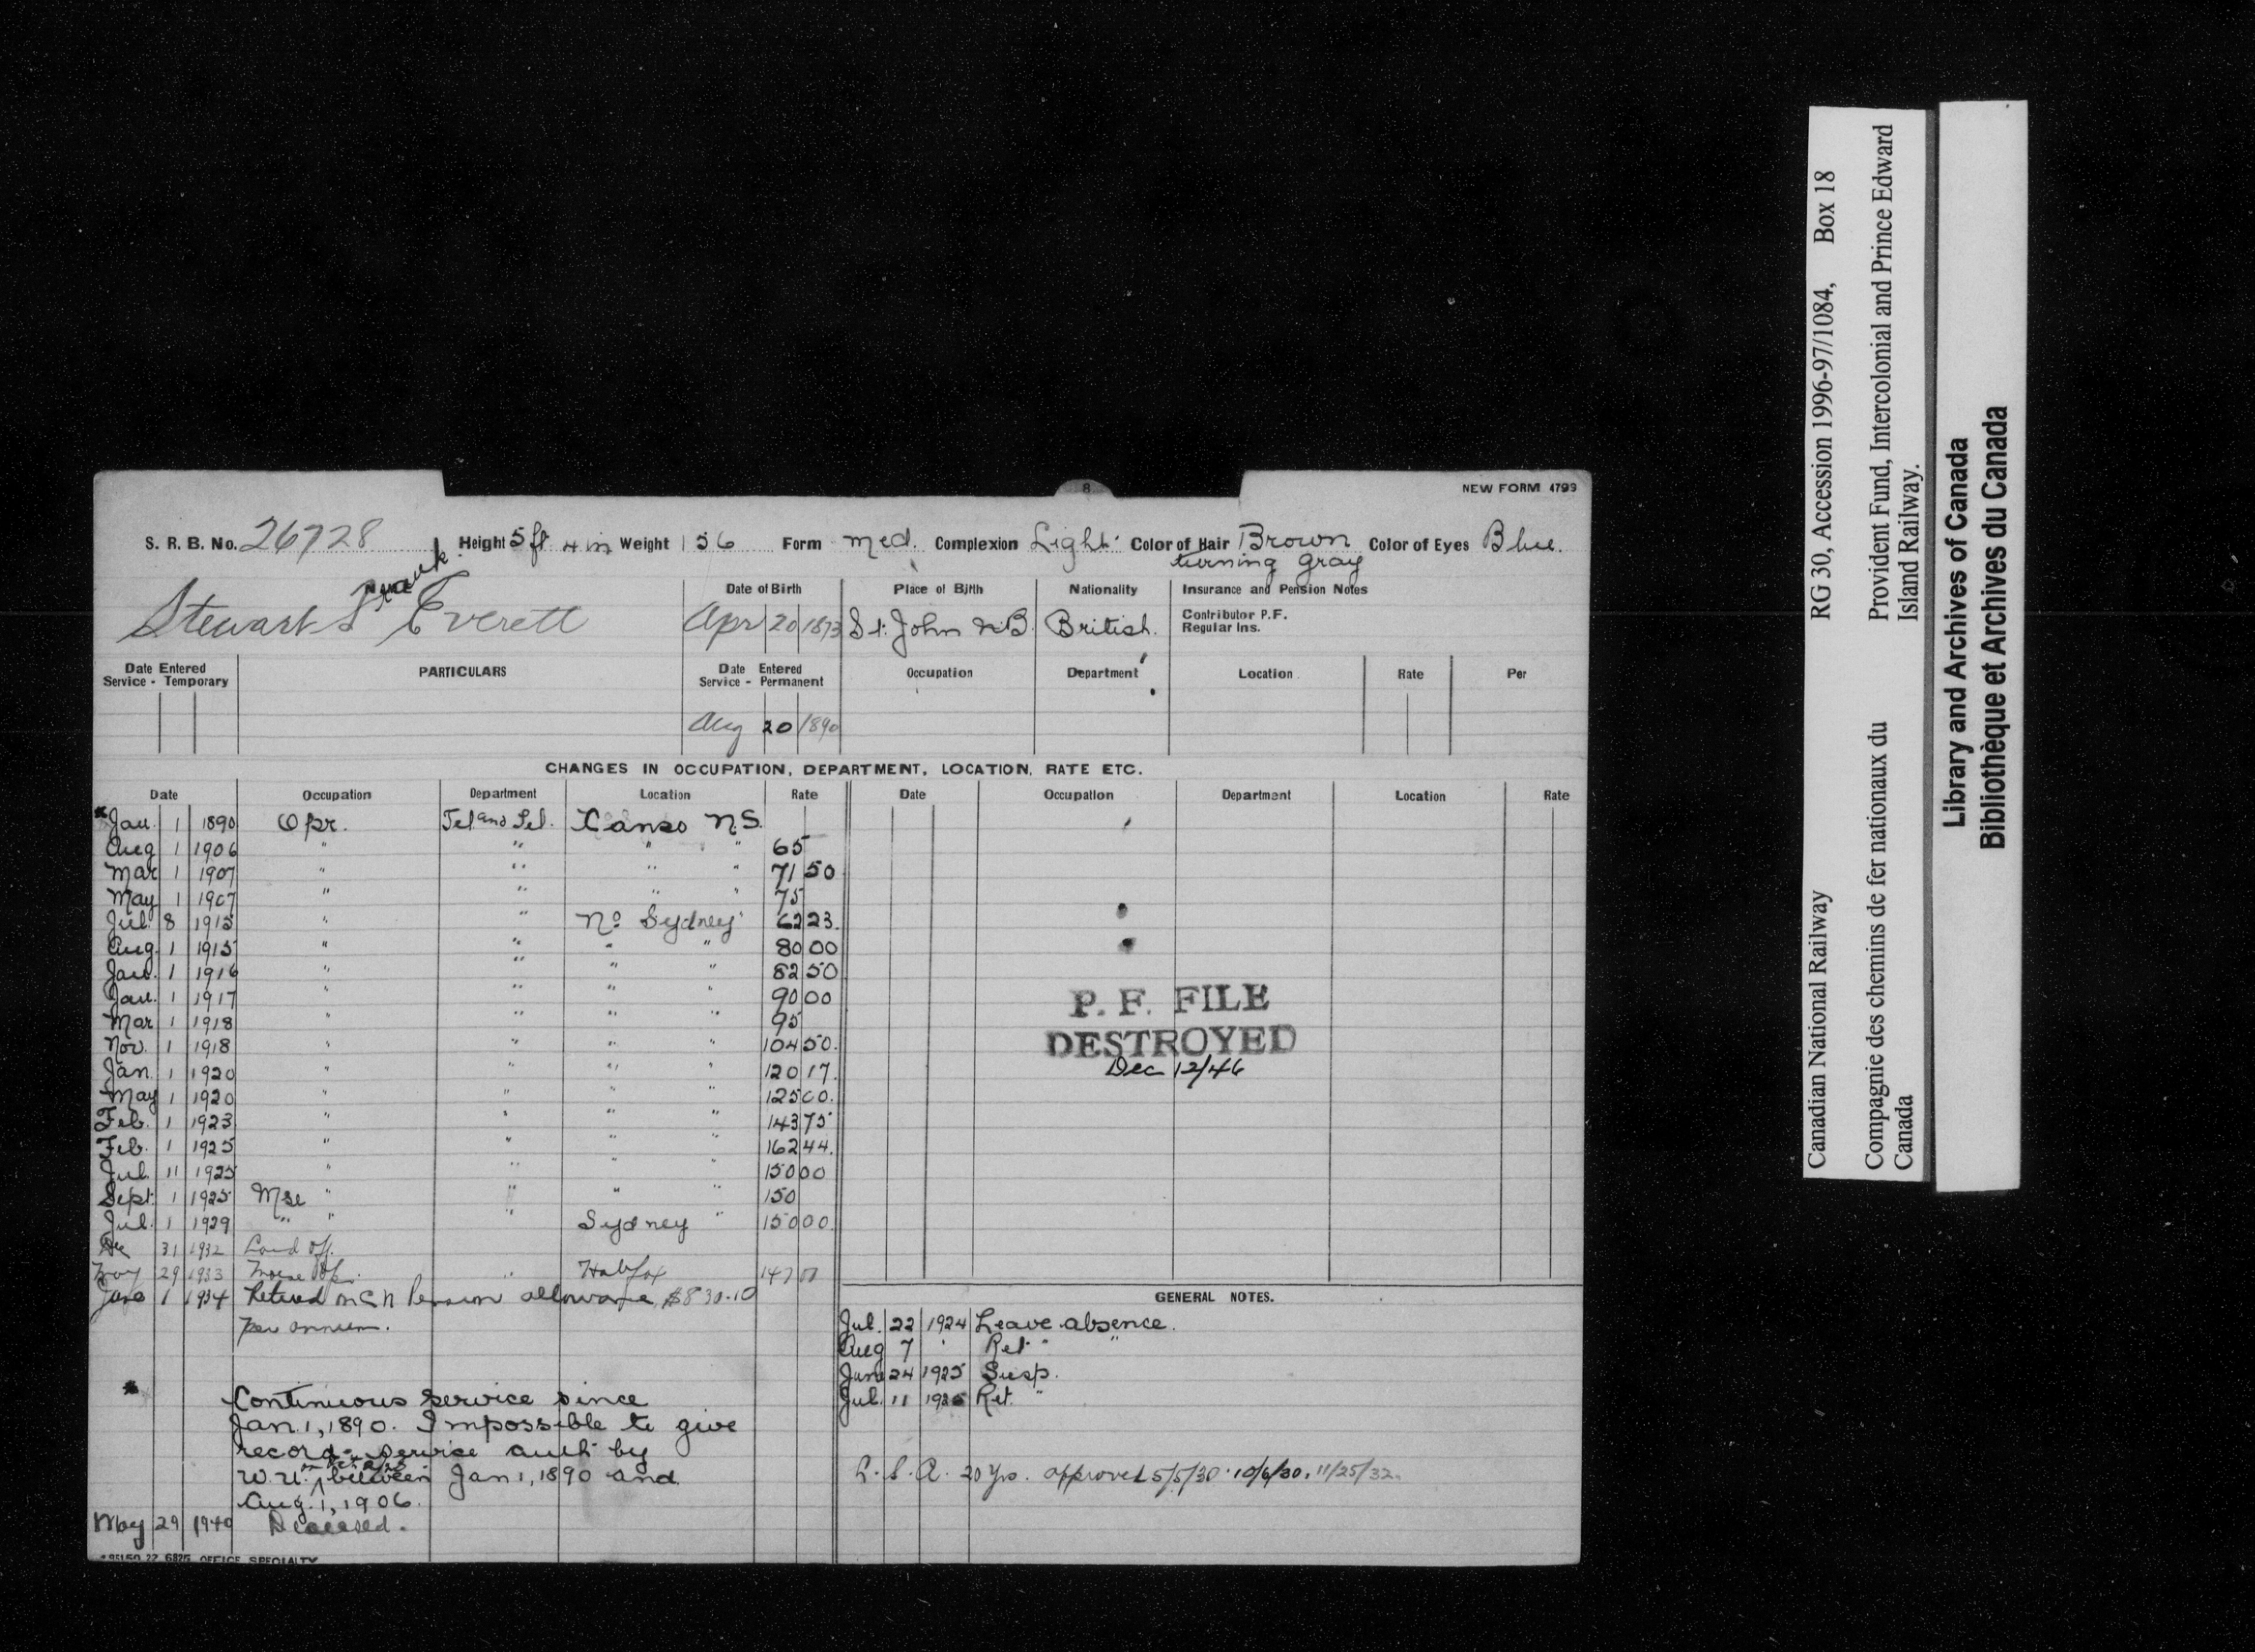 8
NEW FORM 4799
S. R. B. No. 26728 Height 5 ft 4 in Weight 156 Form Med. Complexion Light Color of Hair Brown Color of Eyes Blue.
turning gray
Frank
Name Date of Birth Place of Birth Nationality Insurance and Pension Notes
Stewart F Everett Apr 20 1873 St. John N.B. British. Contributor P.F.
Regular Ins.
Date Entered Service - Temporary PARTICULARS Date Entered Service - Permanent Occupation Department Location Rate Per
Aug 20 1890
CHANGES IN OCCUPATION, DEPARTMENT, LOCATION, RATE ETC.
Date Occupation Department Location Rate Date Occupation Department Location Rate
* Jan. 1 1890 Opr. Tel and Tel. Canso N.S.
Aug 1 1906 " " " " 65
Mar 1 1907 " " " " 71 50
May 1 1907 " " " " 75
Jul. 8 1915 " " No Sydney 62 23.
Aug. 1 1915 " " " " 80 00
Jan. 1 1916 " " " " 82 50
Jan. 1 1917 " " " " 90 00
Mar 1 1918 " " " " 95
Nov. 1 1918 " " " " 104 50.
Jan. 1 1920 " " " " 120 17.
May 1 1920 " " " " 125 00.
Feb. 1 1923 " " " " 143 75
Feb. 1 1925 " " " " 162 44.
Jul. 11 1925 " " " " 150 00
Sept. 1 1925 Mse " " " " 150
Jul. 1 1929 " " " Sydney " 150 00
Dec 31 1932 Laid off.
May 29 1933 Morse Opr. " Halifax 147 00
June 1 1934 Retired on CN Pension allowance $830.10
per annum.
* Continuous service since
Jan. 1, 1890. Impossible to give
record service auth by
W.U. between Jan 1, 1890 and
Aug. 1, 1906.
May 29 1940 Deceased.
OFFICE SPECIALTY
P. F. FILE
DESTROYED
Dec 12/46
GENERAL NOTES.
Jul. 22 1924 Leave absence.
Aug 7 " Ret. "
June 24 1925 Susp.
Jul. 11 1925 Ret. "
L. S. A. 20 yrs. approved 5/5/30. 10/6/30. 11/25/32.
Canadian National Railway RG 30, Accession 1996-97/1084, Box 18
Compagnie des chemins de fer nationaux du Provident Fund, Intercolonial and Prince Edward
Canada Island Railway.
Library and Archives of Canada
Bibliothèque et Archives du Canada